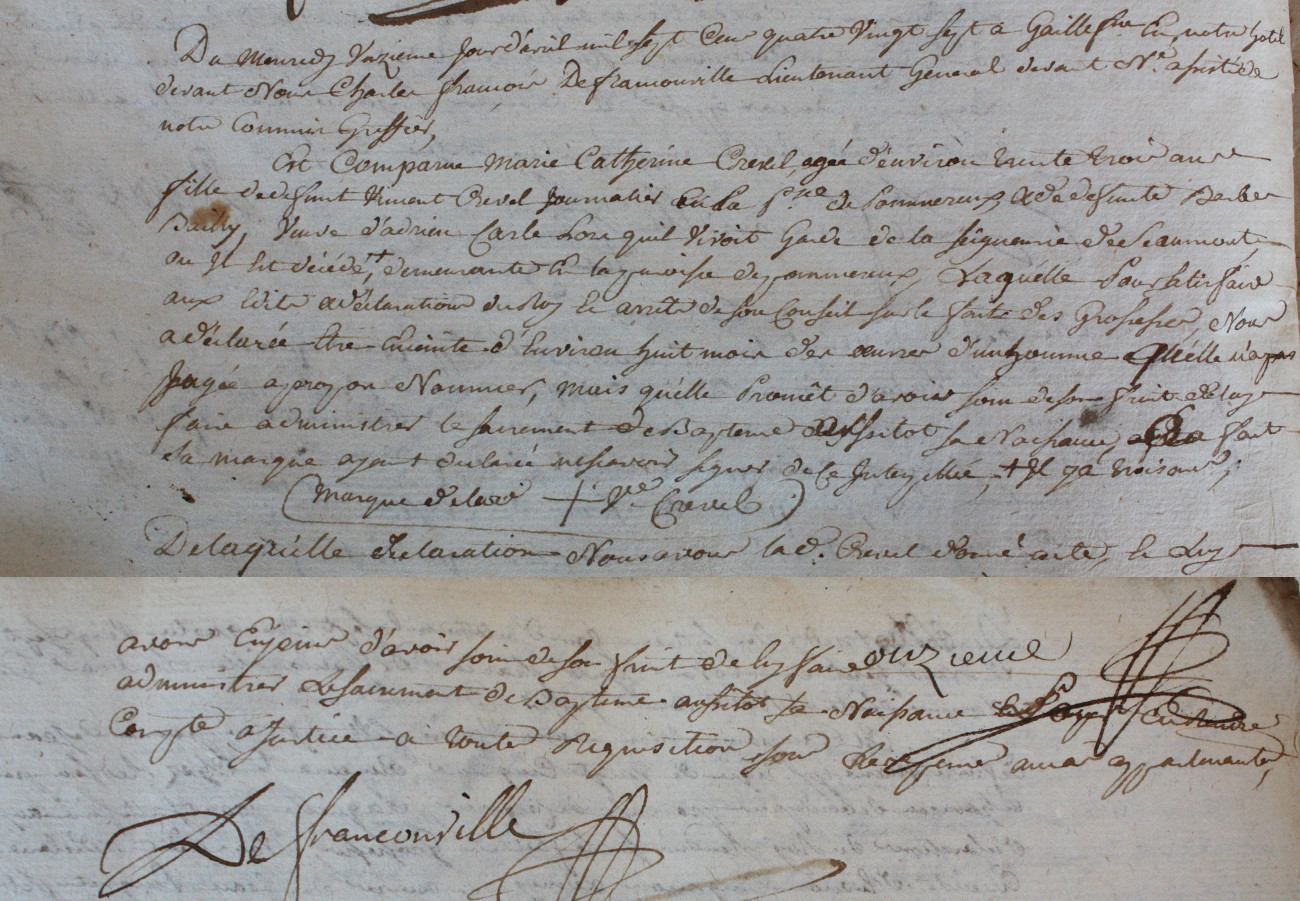 Du Mercredy Unzieme Jour d'avril mil sept Cens quatre Vingt sept a Gaille fne En notre hotel
devant Nous Charles françois De françonville Lieutenant General devant Nt. assisté de
notre Commis Greffier,
Est Comparue Marie Catherine Crevel, agée d'environ trente trois ans
fille de deffunt Vincent Crevel Journalier En la psse de Pommereux & de deffunte Barbe
Bailly, Veuve d'adrien Carle Lors quil Vivoit Garde de la seigneurie de Beaumont,
ou Il Est décédé +, demeurante En la paroisse de pommereux, Laquelle Pour satisfaire
aux Edits & déclarations du Roy Et arrêts de son Conseil sur le faite des Grossesses, Nous
a déclarée être Enceinte d'Environ huit mois des œuvres d'un homme quélle n'a pas
Jugée apropos Nommer, mais quélle Promêt d'avoir soin de son fruit de luy
faire administrer le sacrement de Baptême aussitot sa Naissance, a fait
sa marque ayant declaré ne scavoir signer de ce Interpellée, + Il y a trois ans,
(Marque de lad + Ve Crevel)
De laquélle declaration Nous avons lad. Crevel donné acte, & Luy
avons Enjoint d'avoir soin de son fruit de luy faire onzieme
administrer Le sacrement de Baptême aussitot sa Naissance Et d'en rendre
Compte a Justice a toute Requisition son
De françonville